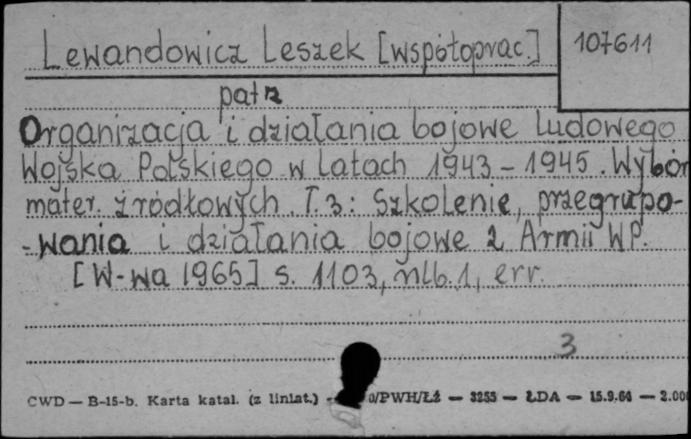 Lewandowicz Leszek [współoprac.]
107611
patrz
Organizacja i działania bojowe ludowego
Wojska Polskiego w latach 1943 - 1945. Wybór
mater. źródłowych. T. 3: Szkolenie, przegrupo-
-wania i działania bojowe 2 Armii WP.
[W-wa 1965] s. 1103, nlb. 1, err.
3
CWD — B-15-b. Karta katal. (z liniat.) — 0/PWH/Łź — 3255 — ŁDA — 15.9.64 — 2.000